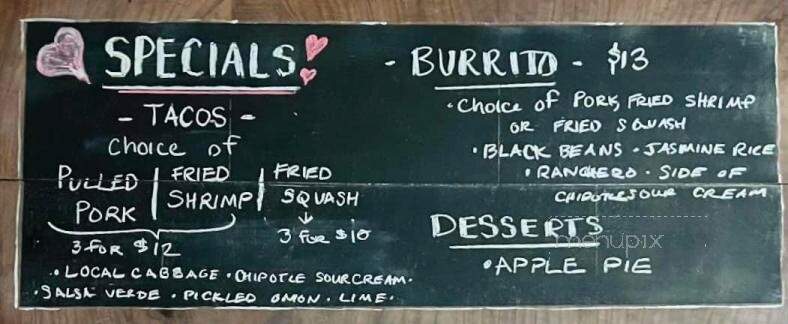 SPECIALS
- TACOS -
Choice of
PULLED PORK | FRIED SHRIMP | FRIED SQUASH
3 FOR $12
3 FOR $10
• LOCAL CABBAGE • CHIPOTLE SOUR CREAM •
• SALSA VERDE • PICKLED ONION • LIME •
- BURRITO - $13
• Choice of PORK, FRIED SHRIMP
OR FRIED SQUASH
• BLACK BEANS • JASMINE RICE
• RANCHERO • SIDE OF
CHIPOTLE SOUR CREAM
DESSERTS
• APPLE PIE
menupix